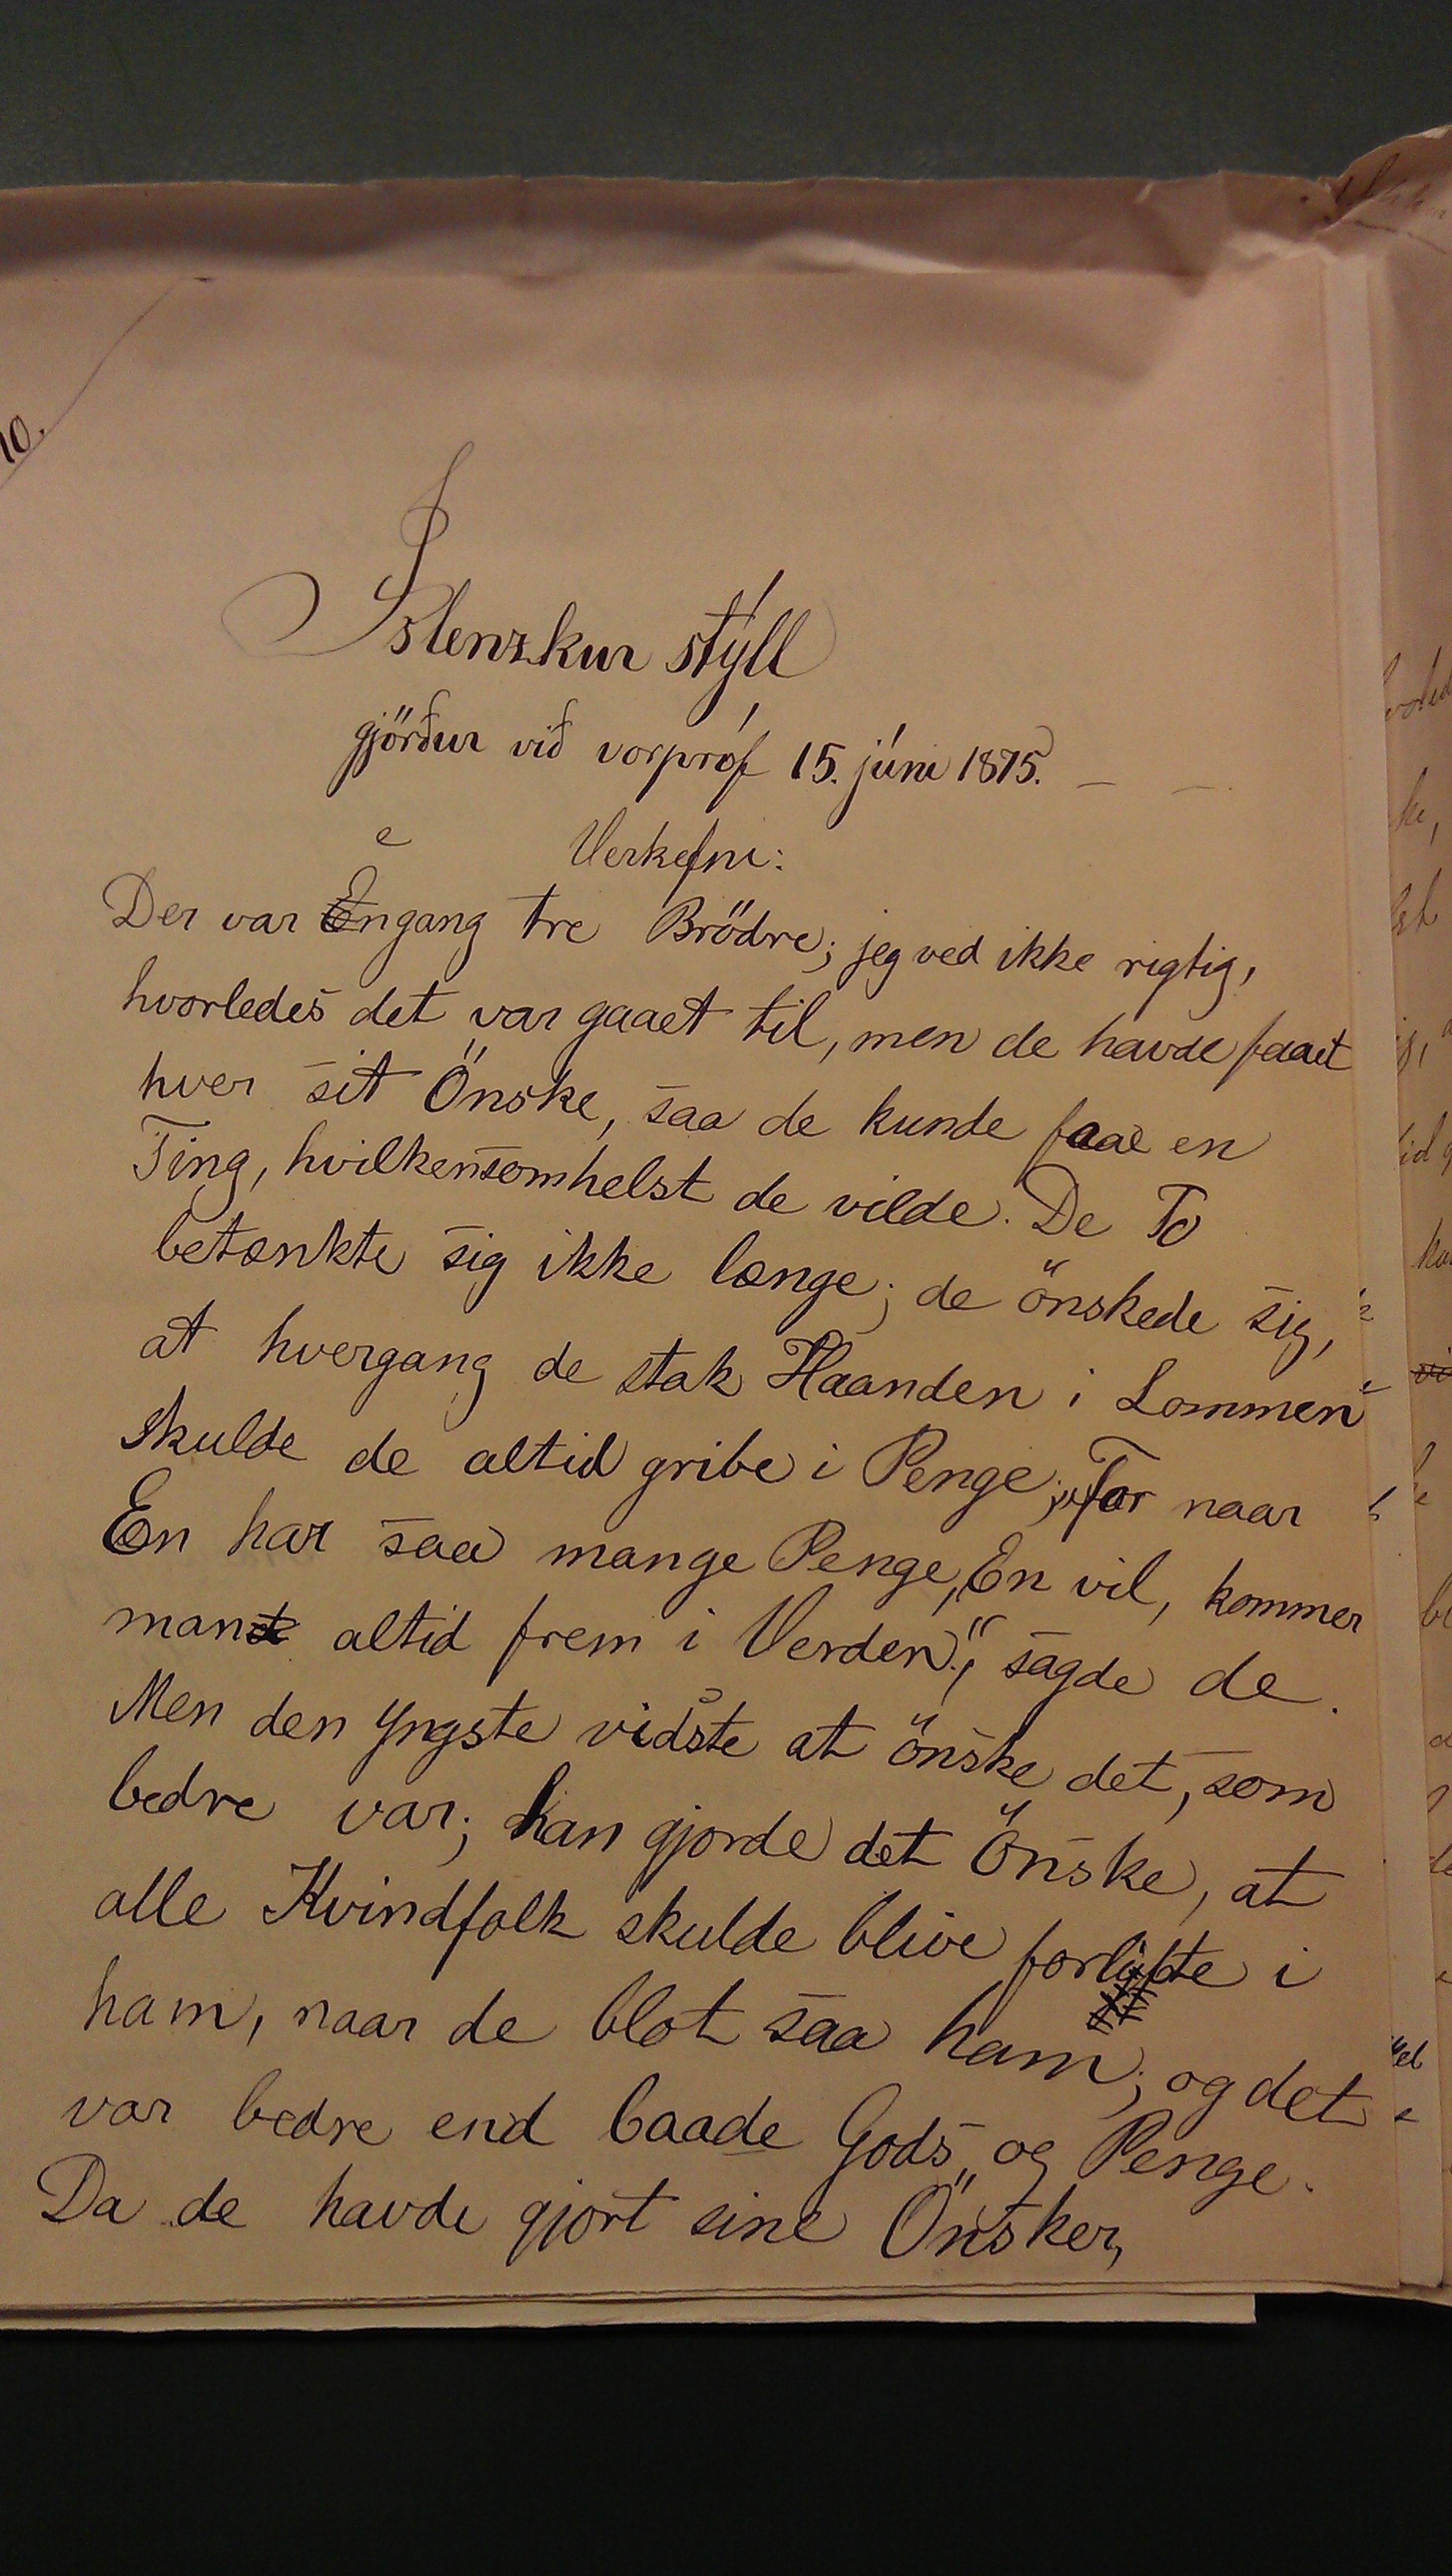 10.
Íslenzkur stýll
gjörður við vorpróf 15. júni 1875.
Verkefni:
Der var engang tre Brödre; jeg ved ikke rigtig,
hvorledes det var gaaet til, men de havde faaet
hver sit Önske, saa de kunde faae en
Ting, hvilkensomhelst de vilde. De To
betænkte sig ikke længe; de önskede sig,
at hvergang de stak Haanden i Lommen
skulde de altid gribe i Penge; „For naar
En har saa mange Penge, En vil, kommer
man altid frem i Verden“, sagde de.
Men den yngste vidste at önske det, som
bedre var; han gjorde det Önske, at
alle Kvindfolk skulde blive forlibte i
ham, naar de blot saa ham; og det
var bedre end baade Gods og Penge.
Da de havde gjort sine Önsker,